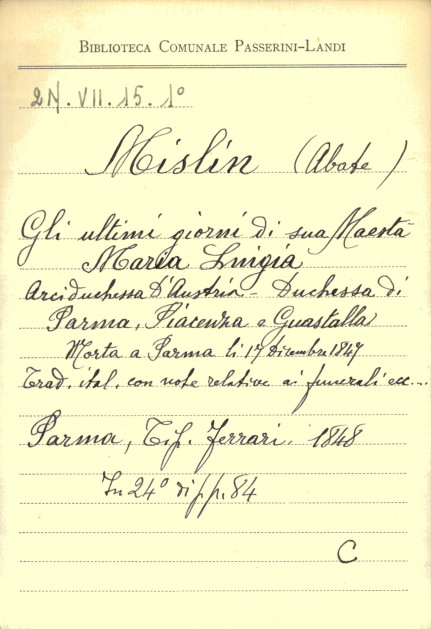 BIBLIOTECA COMUNALE PASSERINI-LANDI
2N.VII.15.1°
Mislin (Abate)
Gli ultimi giorni di sua Maestà
Maria Luigia
Arciduchessa D'Austria - Duchessa di
Parma, Piacenza e Guastalla
Morta a Parma li 17 Dicembre 1847
Trad. ital. con note relative ai funerali ecc...
Parma, Tip. Ferrari. 1848
In 24° di pp. 84
C